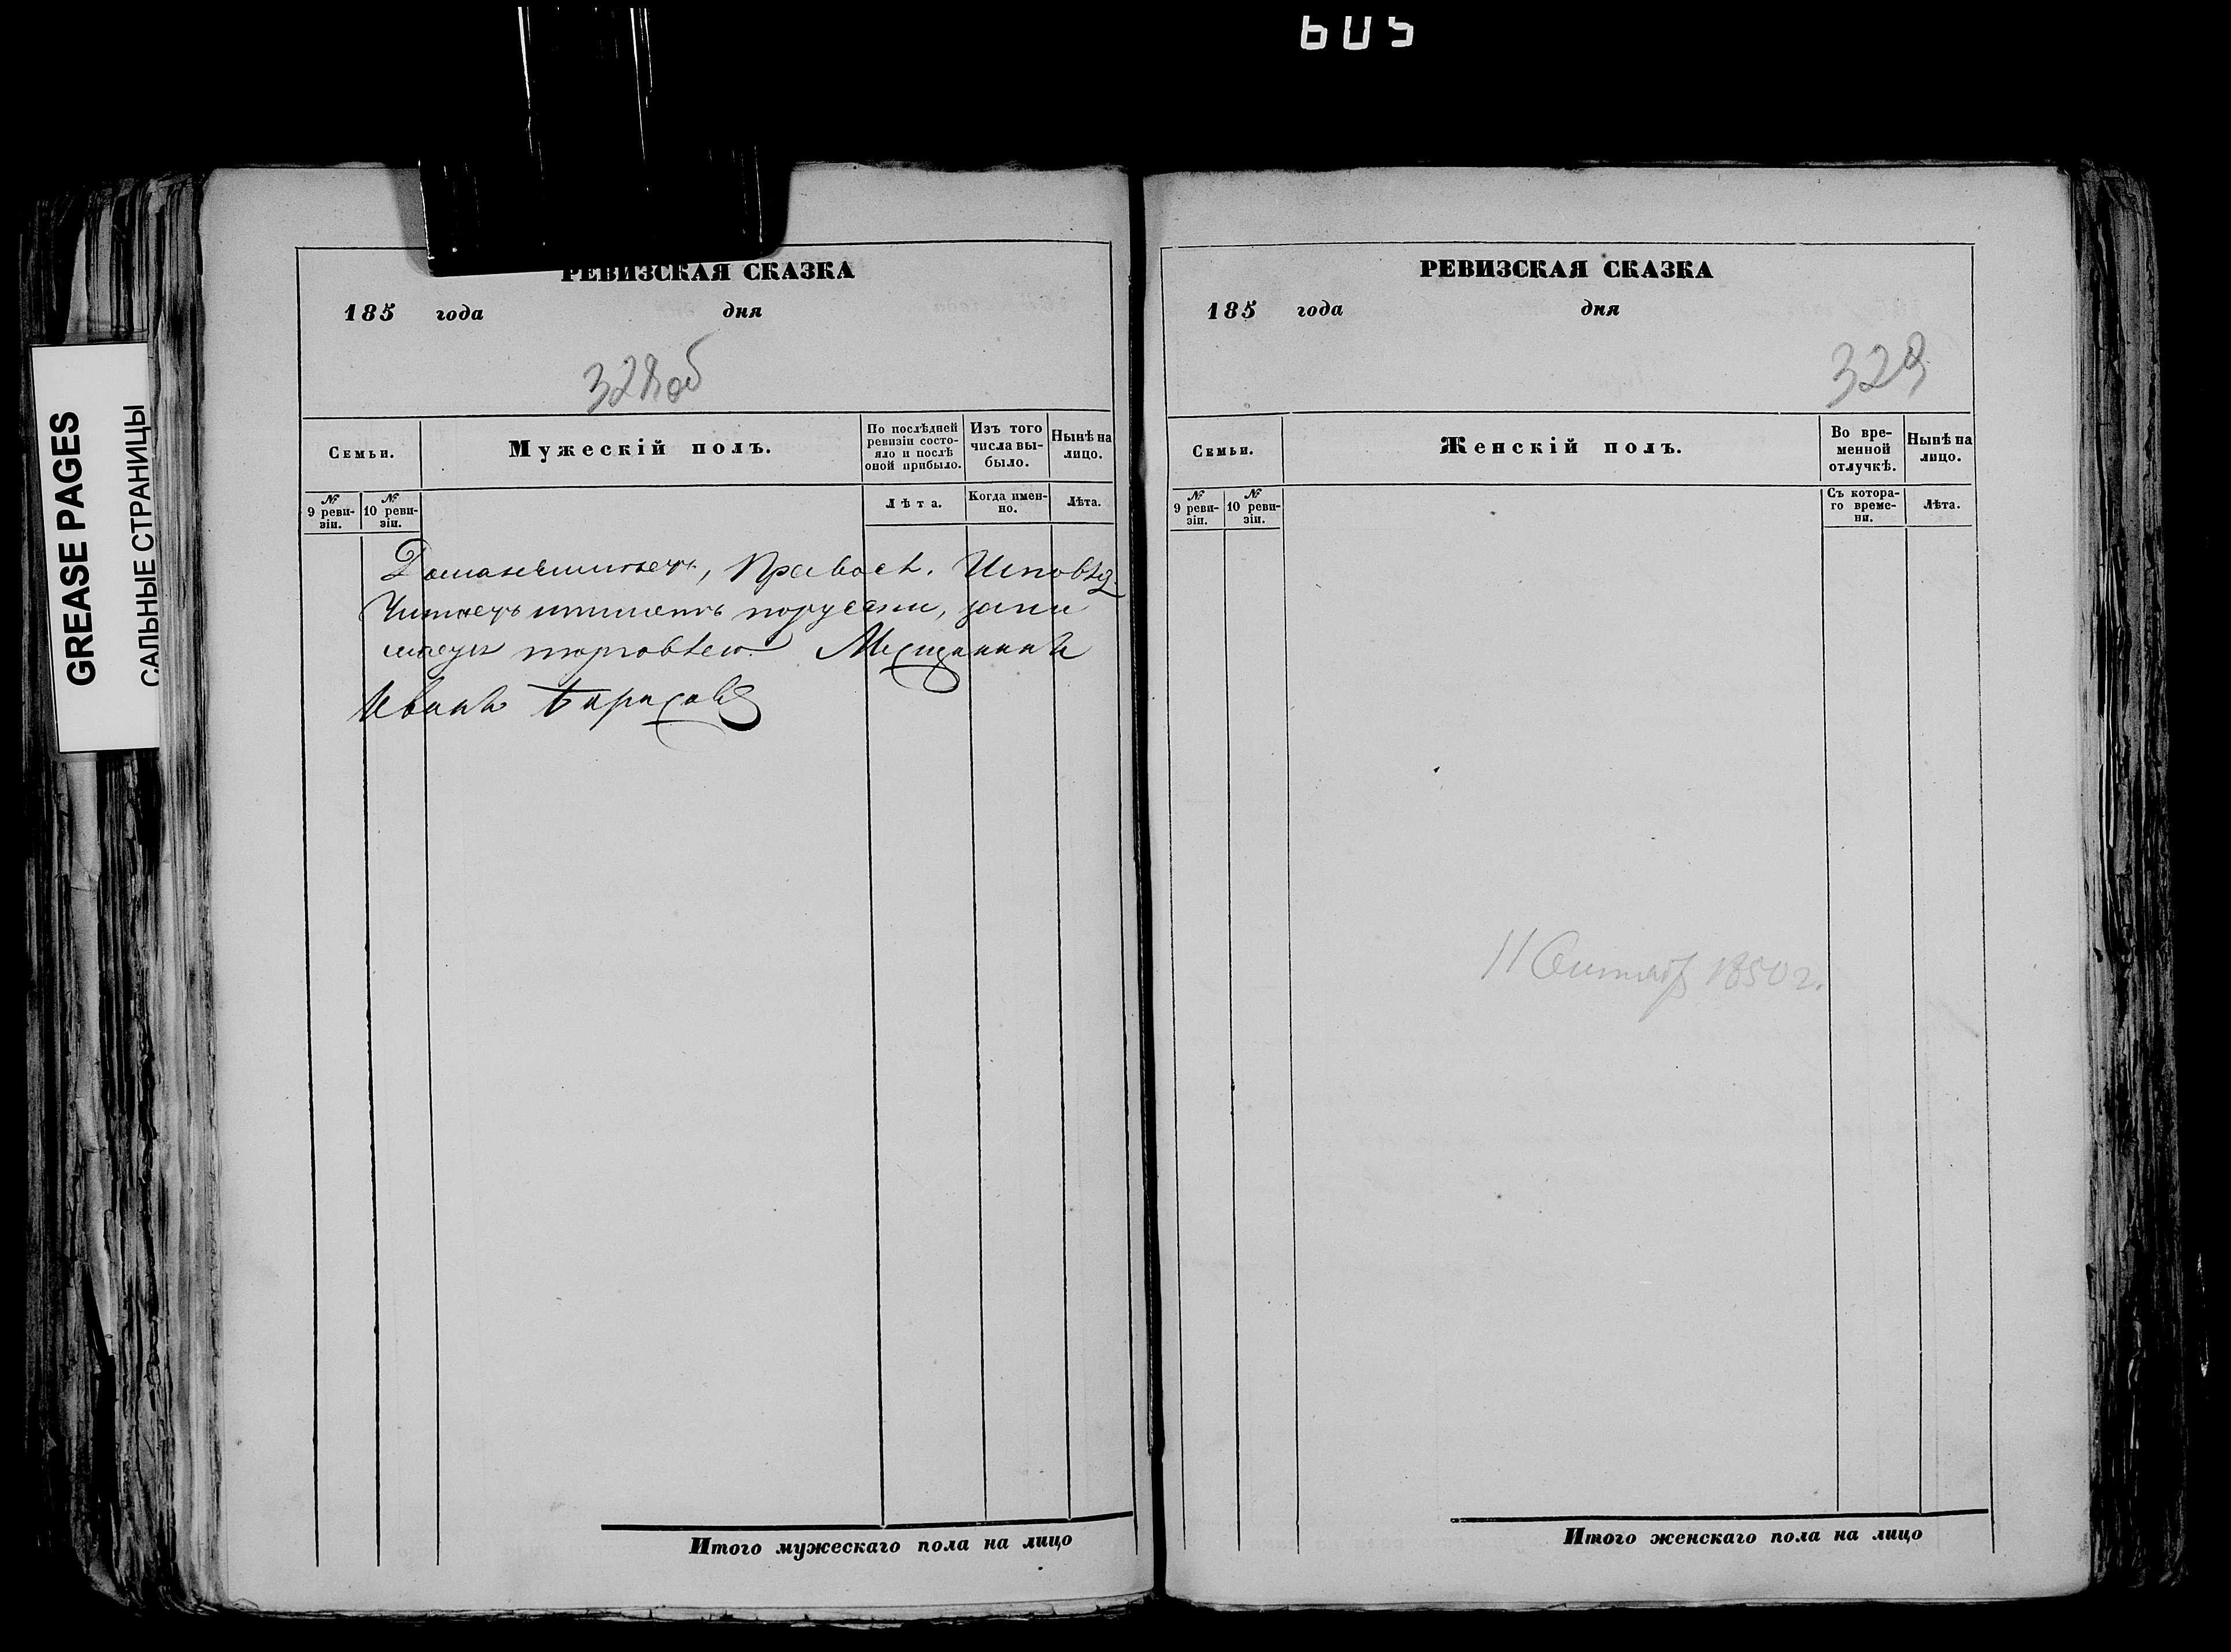 605
GREASE PAGES
САЛЬНЫЕ СТРАНИЦЫ
РЕВИЗСКАЯ СКАЗКА
185 года дня
328 об
Семьи.
Мужескій полъ.
По послѣдней ревизіи состо-
яло и послѣ
оной прибыло.
Изъ того
числа вы-
было.
Нынѣ на
лицо.
№
9 реви-
зіи.
№
10 реви-
зіи.
Лѣта.
Когда имен-
но.
Лѣта.
Православ. Исповѣд.
Читаетъ ипишетъ порусски, зани
маетъ торговлею Мещанинъ
Иванъ
Итого мужескаго пола на лицо
РЕВИЗСКАЯ СКАЗКА
185 года дня
329
Семьи.
Женскій полъ.
Во вре-
менной
отлучкѣ.
Нынѣ на
лицо.
№
9 реви-
зіи.
№
10 реви-
зіи.
Съ котора-
го време-
ни.
Лѣта.
11 1850 г.
Итого женскаго пола на лицо